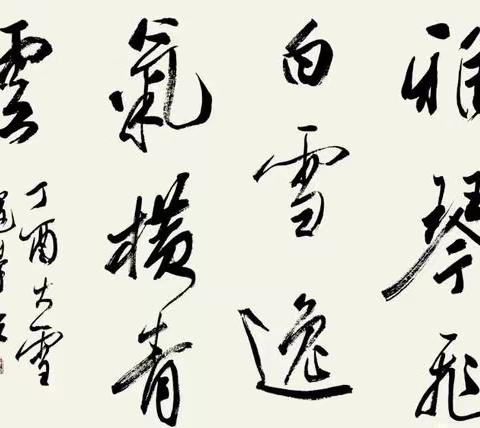 雅琴飛
白雪逸
氣橫青
雲
丁酉大雪